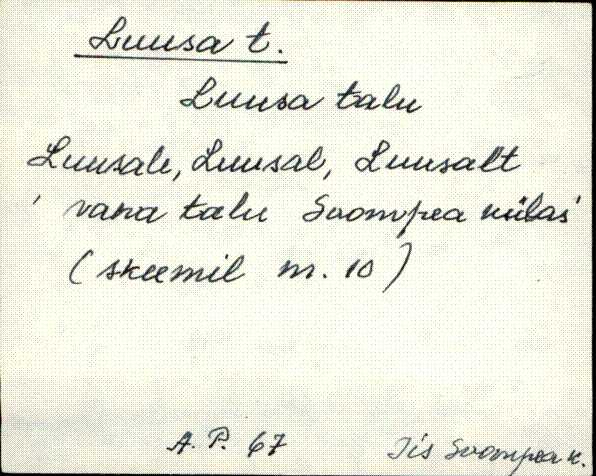 Luusa t.
Luusa talu
Luusale, Luusal, Luusalt
' vana talu Soompea külas'
(skeemil nr. 10)
A. P. 67 Jis Soompea k.